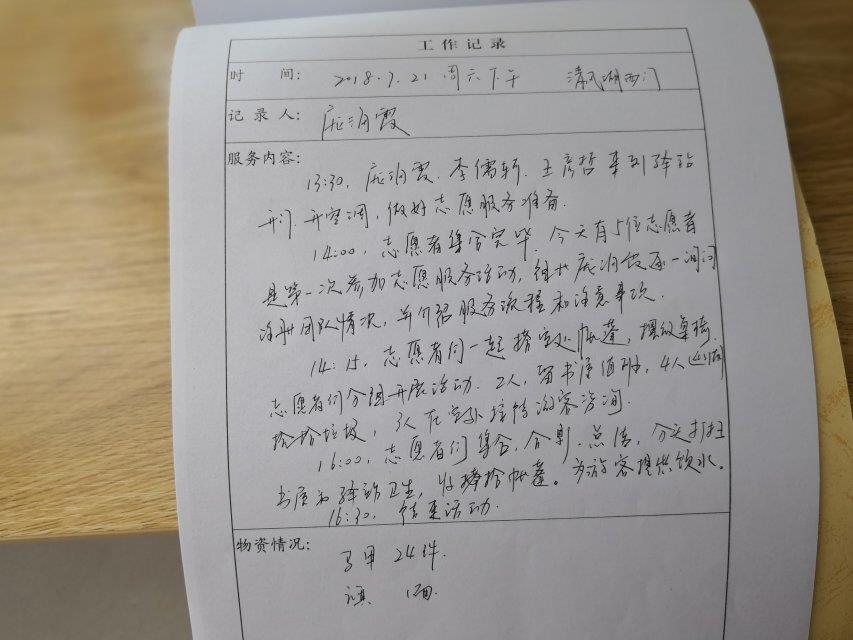 工作记录
时 间: 2018.7.21 周六下午 清风湖西门
记录人: 庞润霞
服务内容:
13:30, 庞润霞. 李儒轩. 王彦哲来到驿站
开门. 开空调, 做好志愿服务准备.
14:00, 志愿者集合完毕. 今天有5位志愿者
是第一次参加志愿服务活动, 组长庞润霞逐一询问
注册团队情况, 并介绍服务流程和注意事项.
14:15, 志愿者们一起搭室外帐蓬, 摆放桌椅.
志愿者们分组开展活动. 2人, 留书屋值班, 4人
捡拾垃圾, 3人在室外接待游客咨询.
16:00, 志愿者们集合, 合影. 总结, 分头打扫
书屋和驿站卫生, 收 帐蓬。为游客提供饮水.
16:30, 结束活动.
物资情况:
马甲 24件.
旗 1面.